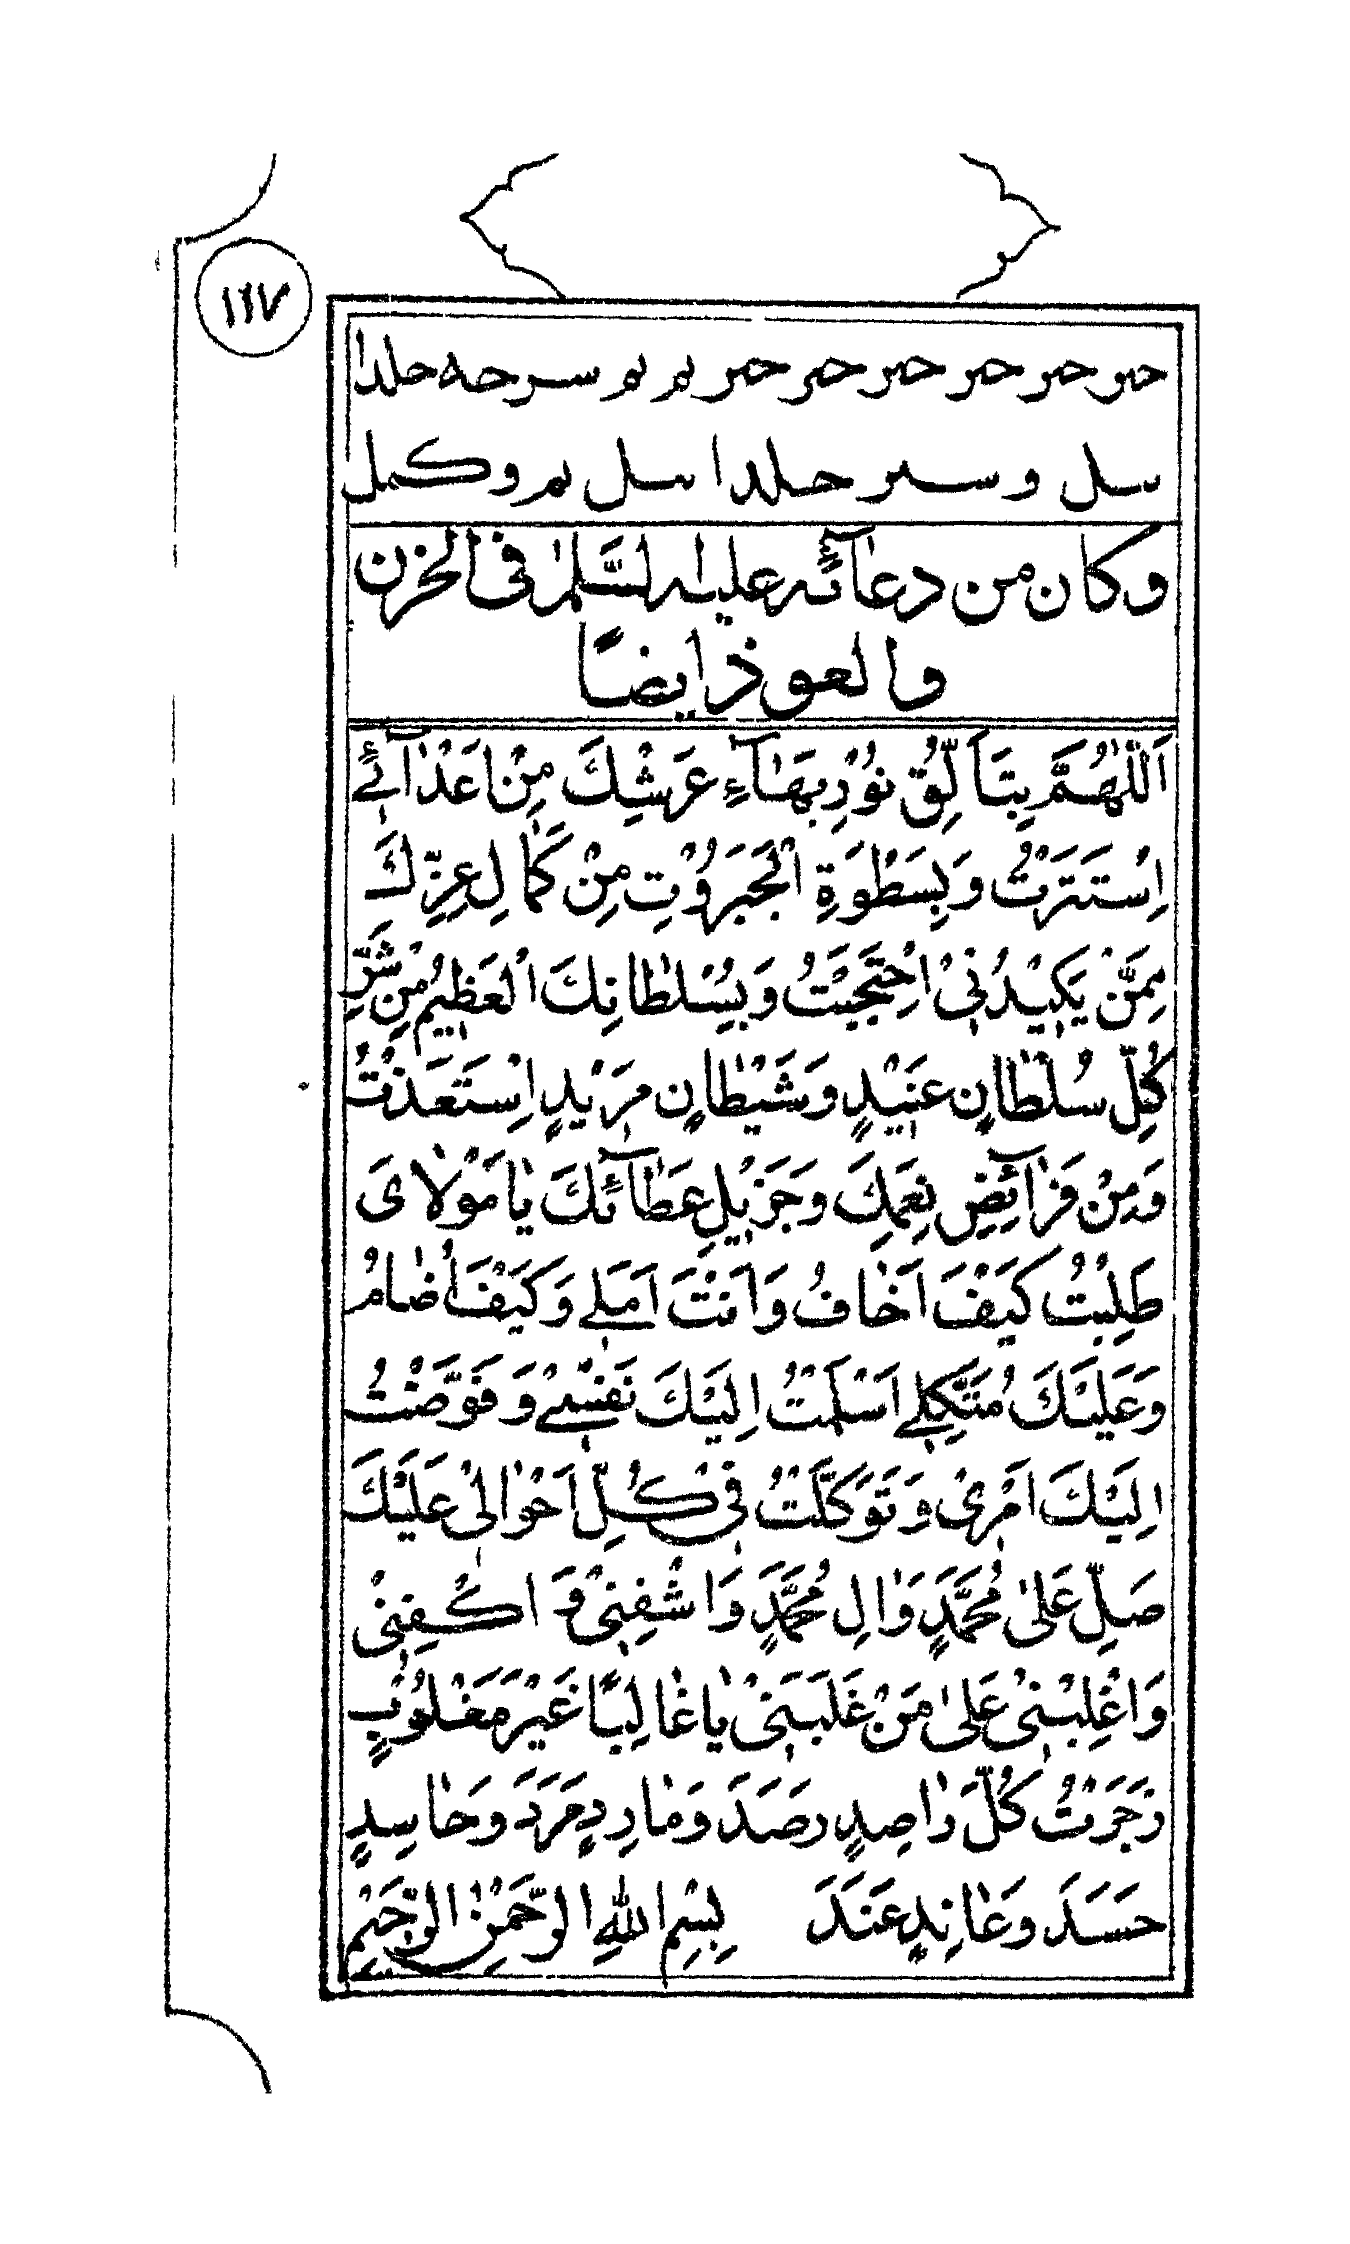 ١٦٧
وكان من دعائه عليه السلم في الحزن
والعوذ ايضًا
اَللّٰهُمَّ بِتَاَلُّقِ نُوْرِ بَهَآءِ عَرْشِكَ مِنْ اَعْدَآئِيْ
اِسْتَتَرْتُ وَبِسَطْوَةِ الْجَبَرُوْتِ مِنْ كَمَالِ عِزِّكَ
مِمَّنْ يَكِيْدُنِيْ احْتَجَبْتُ وَبِسُلْطَانِكَ الْعَظِيْمِ مِنْ شَرِّ
كُلِّ سُلْطَانٍ عَنِيْدٍ وَشَيْطَانٍ مَرِيْدٍ اِسْتَعَذْتُ
وَمِنْ فَرَآئِضِ نِعَمِكَ وَجَزِيْلِ عَطَآئِكَ يَا مَوْلَاىَ
طَلِبْتُ كَيْفَ اَخَافُ وَاَنْتَ اَمَلِيْ وَكَيْفَ اُضَامُ
وَعَلَيْكَ مُتَّكَلِيْ اَسْلَمْتُ اِلَيْكَ نَفْسِيْ وَفَوَّضْتُ
اِلَيْكَ اَمْرِيْ وَتَوَكَّلْتُ فِيْ كُلِّ اَحْوَالِيْ عَلَيْكَ
صَلِّ عَلىٰ مُحَمَّدٍ وَاٰلِ مُحَمَّدٍ وَاشْفِنِيْ وَاكْفِنِيْ
وَاغْلِبْ لِيْ عَلىٰ مَنْ غَلَبَنِيْ يَا غَالِبًا غَيْرَ مَغْلُوْبٍ
زَجَرْتُ كُلَّ رَاصِدٍ رَصَدَ وَمَارِدٍ مَرَدَ وَحَاسِدٍ
حَسَدَ وَعَانِدٍ عَنَدَ بِسْمِ اللهِ الرَّحْمٰنِ الرَّحِيْمِ